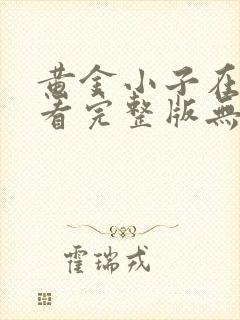 黄金小子在
看完整版無
霍瑞戎